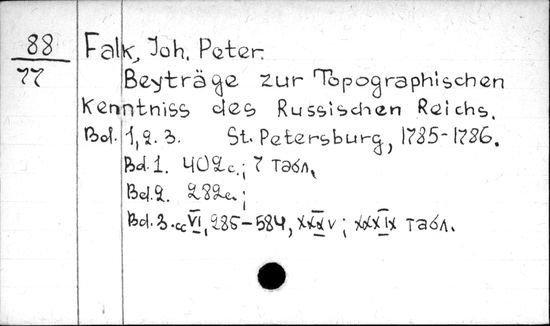 88
77
Falk, Joh. Peter.
Beyträge zur Topographischen
Kenntniss des Russischen Reichs.
Bd. 1, 2. 3. St. Petersburg, 1785-1786.
Bd. 1. 402 c.; 7 табл.
Bd. 2. 282 c.;
Bd. 3. cc VI, 285-584, XXXV; XXXIX табл.